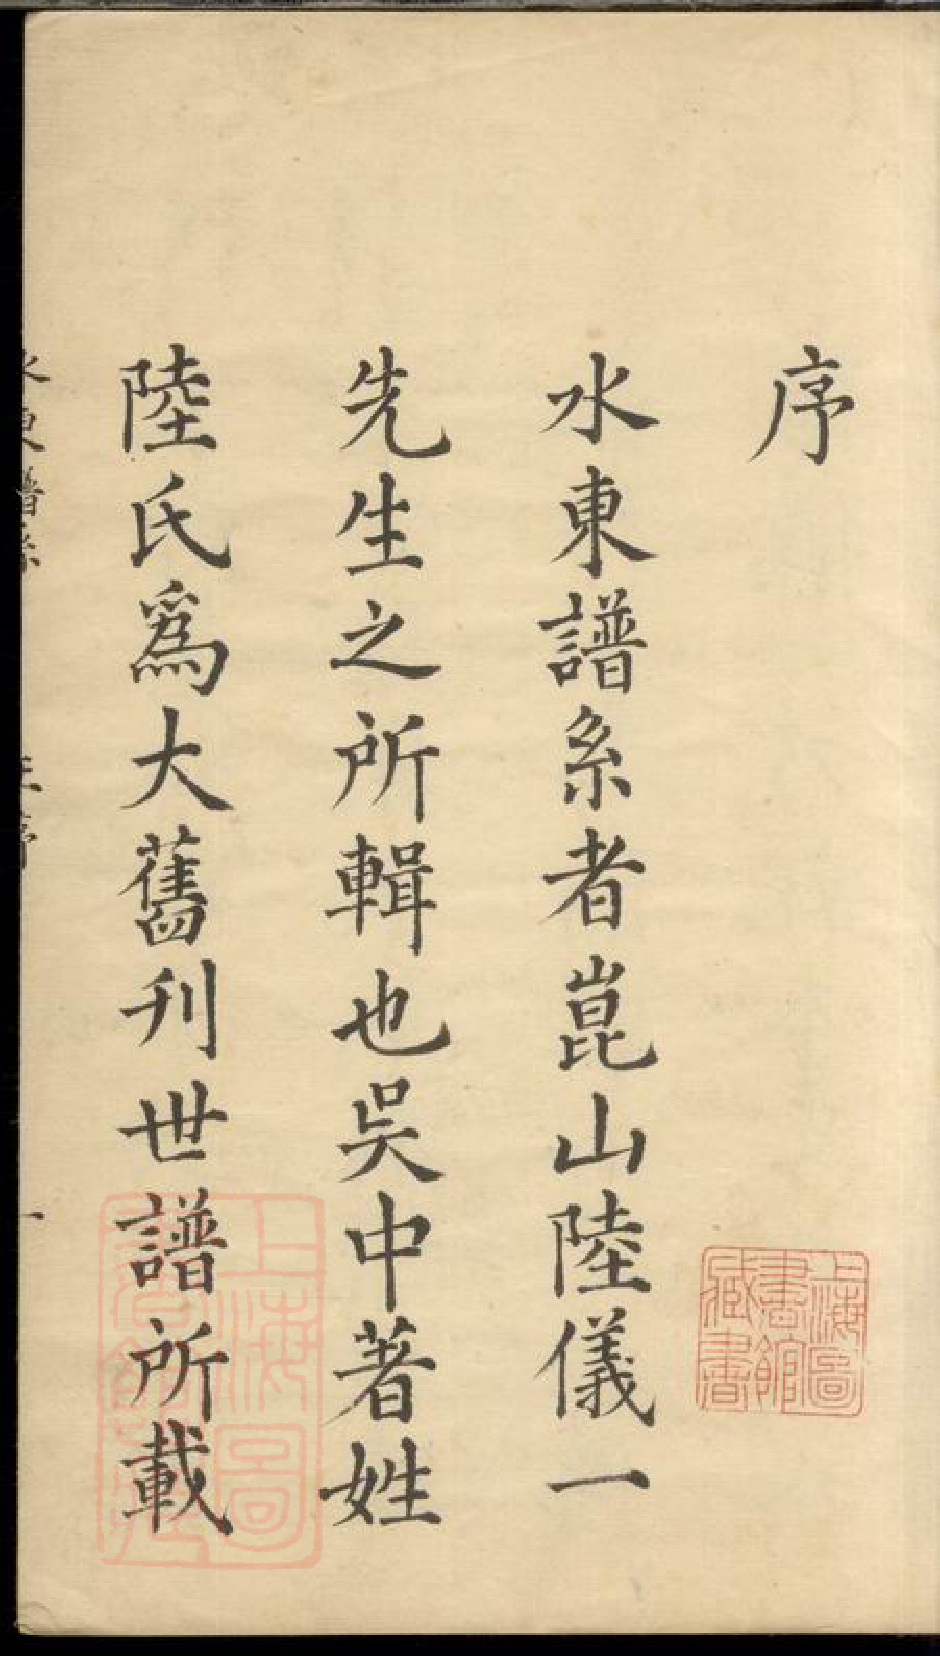 序
水東譜系者崑山陸儀一
先生之所輯也吳中著姓
陸氏爲大舊刋世譜所載
上海圖書館藏書
上海圖書館藏
水東譜系 王序 一